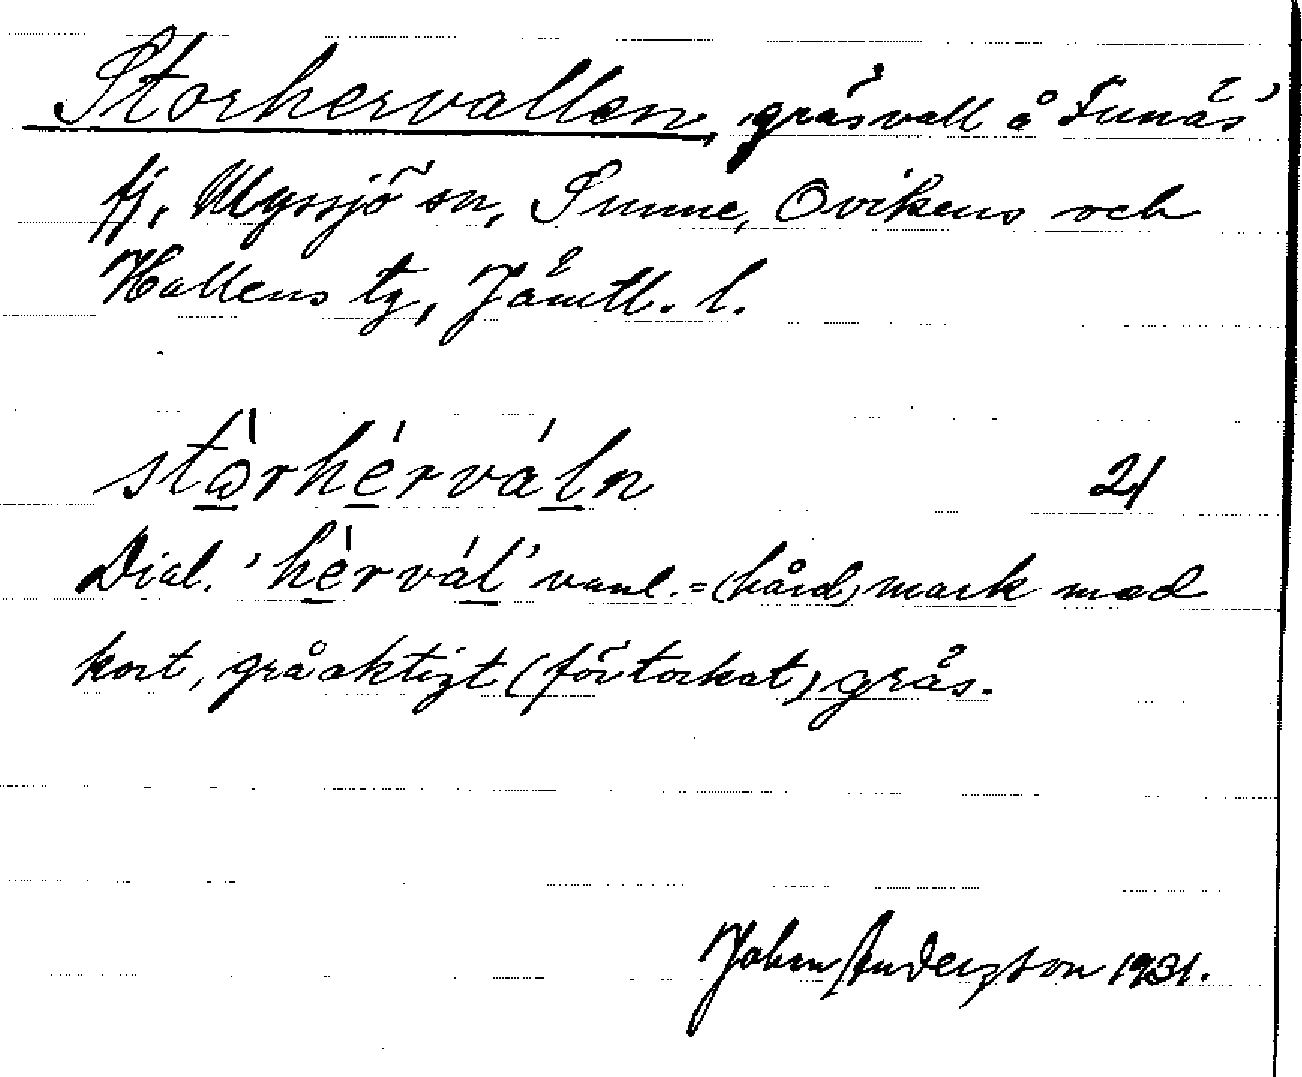 Storhervallen, gräsvall å Funäs
fj, Myssjö sn, Sunne, Ovikens och
Hallens tg, Jämtl. l.
stòrhérváln 21
Dial. 'hèrvál' vanl. = (hård) mark med
kort, gråaktigt (förtorkat) gräs.
John Anderzson 1931.